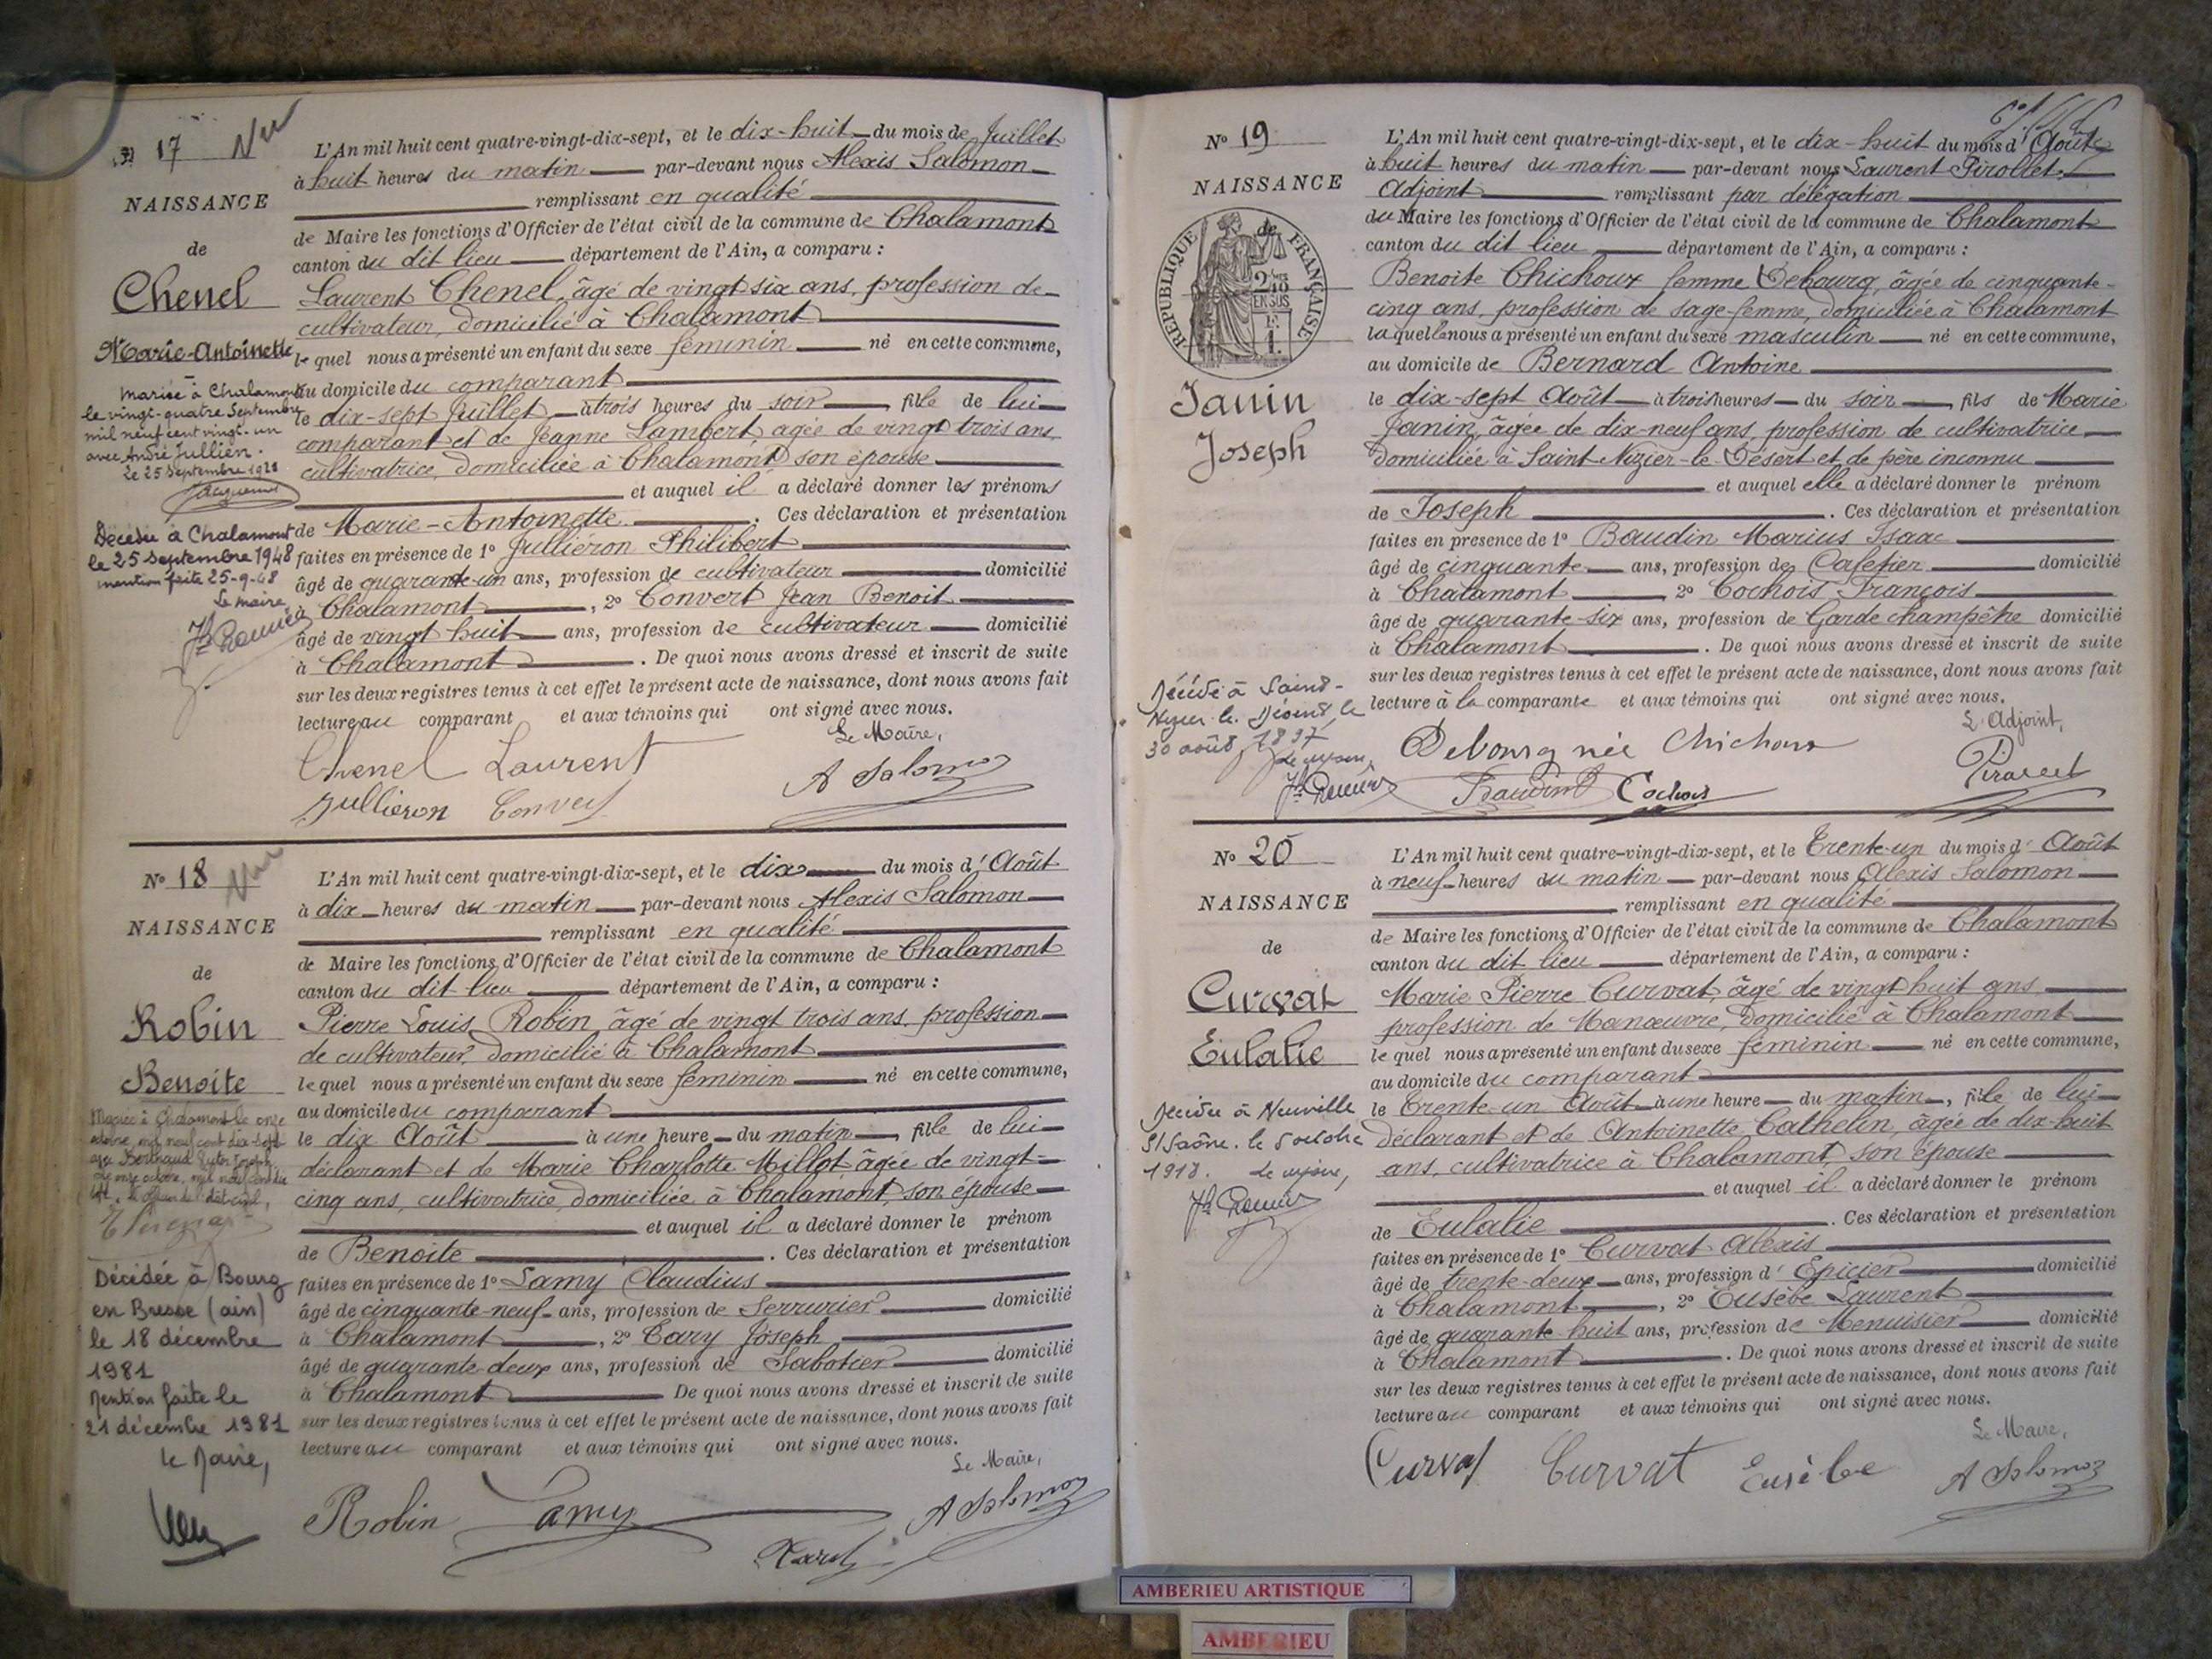 N° 17
NAISSANCE
de
Chenel
Marie-Antoinette
Mariée à Chalamont
le vingt-quatre Septembre
mil neuf cent vingt-un
avec André Jullien.
Le 25 Septembre 1921
Décédée à Chalamont
le 25 septembre 1948
mention faite 25-9-48
Le maire,
L'An mil huit cent quatre-vingt-dix-sept, et le dix-huit du mois de Juillet
à huit heures du matin par-devant nous Alexis Salomon
remplissant en qualité
de Maire les fonctions d'Officier de l'état civil de la commune de Chalamont
canton du dit lieu département de l'Ain, a comparu :
Laurent Chenel, âgé de vingt six ans, profession de
cultivateur, domicilié à Chalamont
le quel nous a présenté un enfant du sexe féminin né en cette commune,
au domicile du comparant
le dix-sept Juillet à trois heures du soir, fille de lui
comparant et de Jeanne Lambert âgée de vingt trois ans,
cultivatrice, domiciliée à Chalamont son épouse
et auquel il a déclaré donner les prénoms
de Marie-Antoinette. Ces déclaration et présentation
faites en présence de 1° Julliéron Philibert
âgé de quarante-un ans, profession de cultivateur domicilié
à Chalamont, 2° Convert Jean Benoit
âgé de vingt huit ans, profession de cultivateur domicilié
à Chalamont. De quoi nous avons dressé et inscrit de suite
sur les deux registres tenus à cet effet le présent acte de naissance, dont nous avons fait
lecture au comparant et aux témoins qui ont signé avec nous.
Le Maire,
Chenel Laurent
A Salomon
Jullieron Convert
N° 18
NAISSANCE
de
Robin
Benoite
Mariée à Chalamont le onze
octobre mil neuf cent dix-sept
avec Berthaud
Décidée à Bourg
en Bresse (ain)
le 18 décembre
1981
Mention faite le
21 décembre 1981
le Maire,
L'An mil huit cent quatre-vingt-dix-sept, et le dix du mois d'Août
à dix heures du matin par-devant nous Alexis Salomon
remplissant en qualité
de Maire les fonctions d'Officier de l'état civil de la commune de Chalamont
canton du dit lieu département de l'Ain, a comparu :
Pierre Louis Robin âgé de vingt trois ans, profession
de cultivateur, domicilié à Chalamont
le quel nous a présenté un enfant du sexe féminin né en cette commune,
au domicile du comparant
le dix Août à une heure du matin, fille de lui
déclarant et de Marie Charlotte Millot âgée de vingt-
cinq ans, cultivatrice, domiciliée à Chalamont, son épouse
et auquel il a déclaré donner le prénom
de Benoite. Ces déclaration et présentation
faites en présence de 1° Lamy Claudius
âgé de cinquante-neuf ans, profession de Serrurier domicilié
à Chalamont, 2° Tary Joseph
âgé de quarante deux ans, profession de Sabotier domicilié
à Chalamont De quoi nous avons dressé et inscrit de suite
sur les deux registres tenus à cet effet le présent acte de naissance, dont nous avons fait
lecture au comparant et aux témoins qui ont signé avec nous.
Le Maire,
Robin Lamy
A Salomon
N° 19
NAISSANCE
de
REPUBLIQUE FRANÇAISE
2/10 EN SUS
Janin
Joseph
Décédé à Saint-
Nizier-le-Désert, le
30 août 1897
Le maire,
L'An mil huit cent quatre-vingt-dix-sept, et le dix-huit du mois d'Août
à huit heures du matin par-devant nous Laurent Pirollet,
Adjoint remplissant par délégation
du Maire les fonctions d'Officier de l'état civil de la commune de Chalamont
canton du dit lieu département de l'Ain, a comparu :
Benoite Chichoux femme Debourg, âgée de cinquante-
cinq ans, profession de sage-femme, domiciliée à Chalamont
la quelle nous a présenté un enfant du sexe masculin né en cette commune,
au domicile de Bernard Antoine
le dix-sept Août à trois heures du soir, fils de Marie
Janin, âgée de dix-neuf ans, profession de cultivatrice
domiciliée à Saint Nizier-le-Désert et de père inconnu
et auquel elle a déclaré donner le prénom
de Joseph. Ces déclaration et présentation
faites en présence de 1° Baudin Marius Isaac
âgé de cinquante ans, profession de Cafetier domicilié
à Chalamont 2° Cochois François
âgé de quarante-six ans, profession de Garde champêtre domicilié
à Chalamont. De quoi nous avons dressé et inscrit de suite
sur les deux registres tenus à cet effet le présent acte de naissance, dont nous avons fait
lecture à la comparante et aux témoins qui ont signé avec nous.
L'Adjoint,
Debourg née Chichoux
Baudin Cochois
N° 20
NAISSANCE
de
Curvat
Eulalie
Décédée à Neuville
S/Saône. le 5 octobre
1918. Le maire,
L'An mil huit cent quatre-vingt-dix-sept, et le Trente-un du mois d'Août
à neuf heures du matin par-devant nous Alexis Salomon
remplissant en qualité
de Maire les fonctions d'Officier de l'état civil de la commune de Chalamont
canton du dit lieu département de l'Ain, a comparu :
Marie Pierre Curvat, âgé de vingt huit ans
profession de Manœuvre, domicilié à Chalamont
le quel nous a présenté un enfant du sexe féminin né en cette commune,
au domicile du comparant
le Trente-un Août à une heure du matin, fille de lui
déclarant et de Antoinette Cathelin, âgée de dix-huit
ans, cultivatrice à Chalamont, son épouse
et auquel il a déclaré donner le prénom
de Eulalie. Ces déclaration et présentation
faites en présence de 1° Curvat Alexis
âgé de trente-deux ans, profession d'Epicier domicilié
à Chalamont, 2° Eusèbe Laurent
âgé de quarante huit ans, profession de Menuisier domicilié
à Chalamont. De quoi nous avons dressé et inscrit de suite
sur les deux registres tenus à cet effet le présent acte de naissance, dont nous avons fait
lecture au comparant et aux témoins qui ont signé avec nous.
Le Maire,
Curvat Curvat Eusèbe
A Salomon
AMBERIEU ARTISTIQUE
AMBERIEU